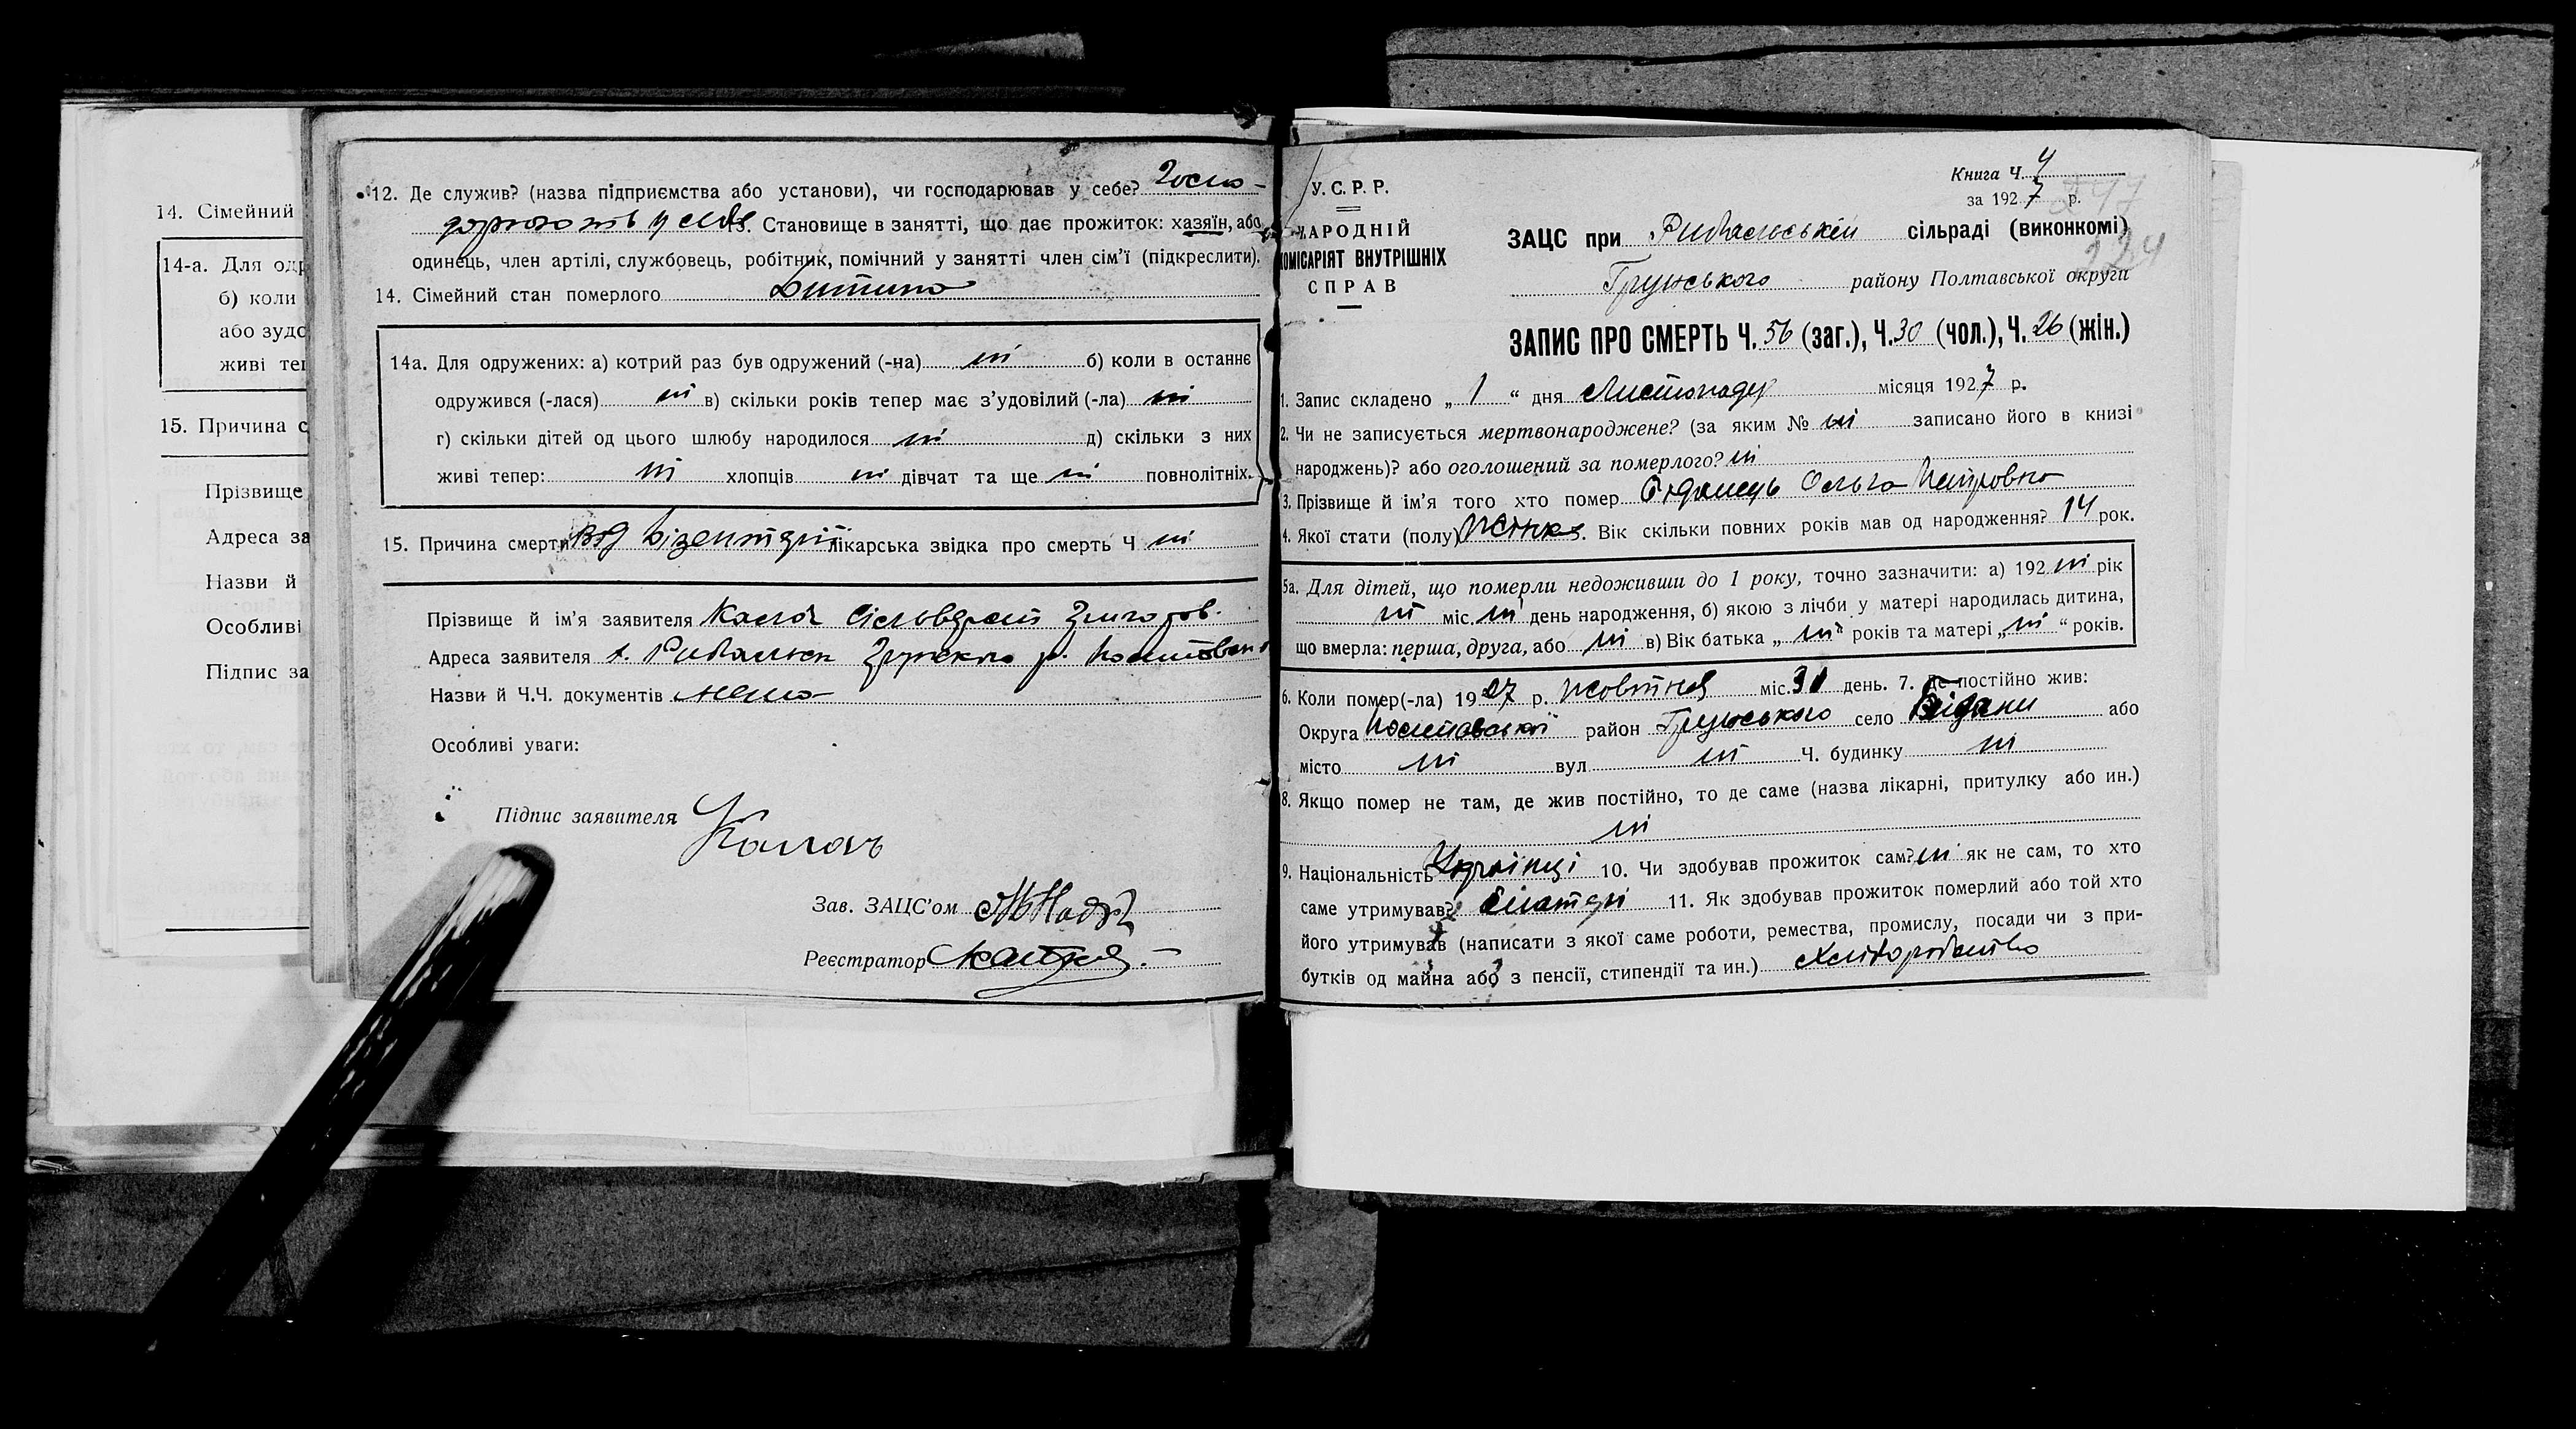 14. Сімейний
14-а. Для одр
б) коли
або зудо
живі теп
15. Причина с
Прізвище
Адреса за
Назви й
Особливі
Підпис за
12. Де служив? (назва підприємства або установи), чи господарював у себе? Госпо-
дарюють у себе 13. Становище в занятті, що дає прожиток: хазяїн, або
одинець, член артілі, службовець, робітник, помічний у занятті член сім'ї (підкреслити).
14. Сімейний стан померлого Дитина
14а. Для одружених: а) котрий раз був одружений (-на) ні б) коли в останнє
одружився (-лася) ні в) скільки років тепер має з'удовілий (-ла) ні
г) скільки дітей од цього шлюбу народилося ні д) скільки з них
живі тепер: ні хлопців ні дівчат та ще ні повнолітніх.
15. Причина смерти Від дізентерії лікарська звідка про смерть Ч ні
Прізвище й ім'я заявителя Калач Сільвестр Григоров.
Адреса заявителя х. Рибальськ Грунского р. Полтавсько
Назви й Ч.Ч. документів нема
Особливі уваги:
Підпис заявителя Калачь
Зав. ЗАЦС'ом
Реєстратор
У. С. Р. Р.
НАРОДНІЙ
КОМІСАРІЯТ ВНУТРІШНІХ
СПРАВ
Книга Ч. 4
за 1927 р.
ЗАЦС при Рибальській сільраді (виконкомі)
Грунського району Полтавської округи
ЗАПИС ПРО СМЕРТЬ Ч. 56 (заг.), Ч. 30 (чол.), Ч. 26 (жін.)
1. Запис складено „ 1 “ дня Листопаду місяця 1927 р.
2. Чи не записується мертвонароджене? (за яким № ні записано його в книзі
народжень)? або оголошений за померлого? ні
3. Прізвище й ім'я того хто помер Ольга Петровна
4. Якої стати (полу) Жінка 5. Вік скільки повних років мав од народження? 14 рок.
5а. Для дітей, що померли недоживши до 1 року, точно зазначити: а) 192 ні рік
ні міс. ні день народження, б) якою з лічби у матері народилась дитина,
що вмерла: перша, друга, або ні в) Вік батька „ ні “ років та матері „ ні “ років.
6. Коли помер(-ла) 1927 р. жовтня міс. 31 день. 7. Де постійно жив:
Округа Полтавської район Грунського село Бідани або
місто ні вул ні Ч. будинку ні
8. Якщо помер не там, де жив постійно, то де саме (назва лікарні, притулку або ин.)
ні
9. Національність Українці 10. Чи здобував прожиток сам? ні як не сам, то хто
саме утримував? 11. Як здобував прожиток померлий або той хто
його утримував (написати з якої саме роботи, ремества, промислу, посади чи з при-
бутків од майна або з пенсії, стипендії та ин.) Хліборобство